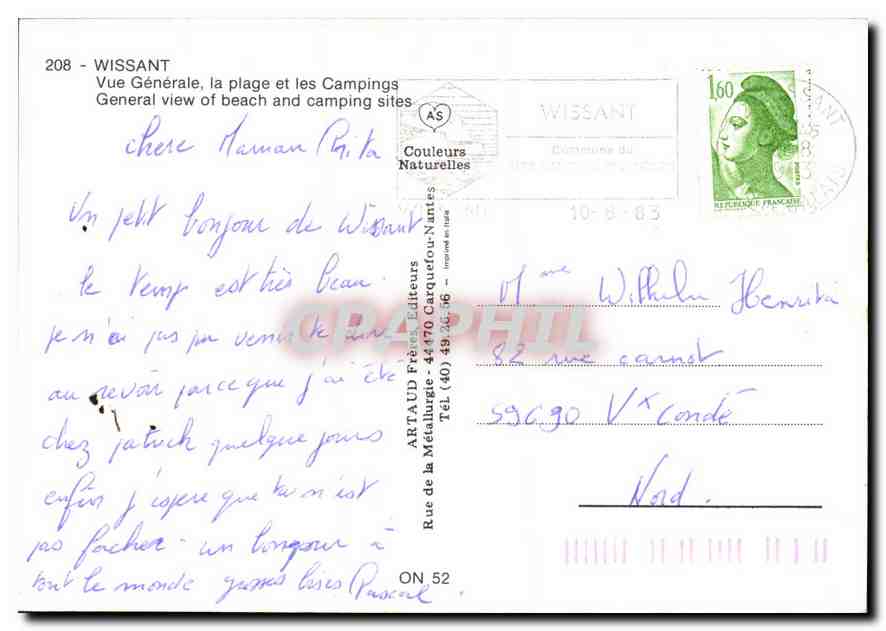 208 - WISSANT
Vue Générale, la plage et les Campings
General view of beach and camping sites
AS
Couleurs
Naturelles
WISSANT
Commune du
10-8-83
1,60
POSTES
REPUBLIQUE FRANÇAISE
chere Maman Rita
Un petit bonjour de Wissant
le temp est très beau.
je n'ai pas pu venir te dire
au revoir parce que j'ai été
chez patrick quelque jours
enfin j'espere que tu n'est
pas facher - un bonjour à
tout le monde grosses bises Pascal.
ARTAUD Frères, Editeurs
Rue de la Métallurgie - 44470 Carquefou-Nantes
Tél. (40) 49.26.56 - Imprimé en Italie
CPAPHIL
Mme Wilhelm Henrita
82 rue carnot
59690 Vx Condé
Nord.
ON 52